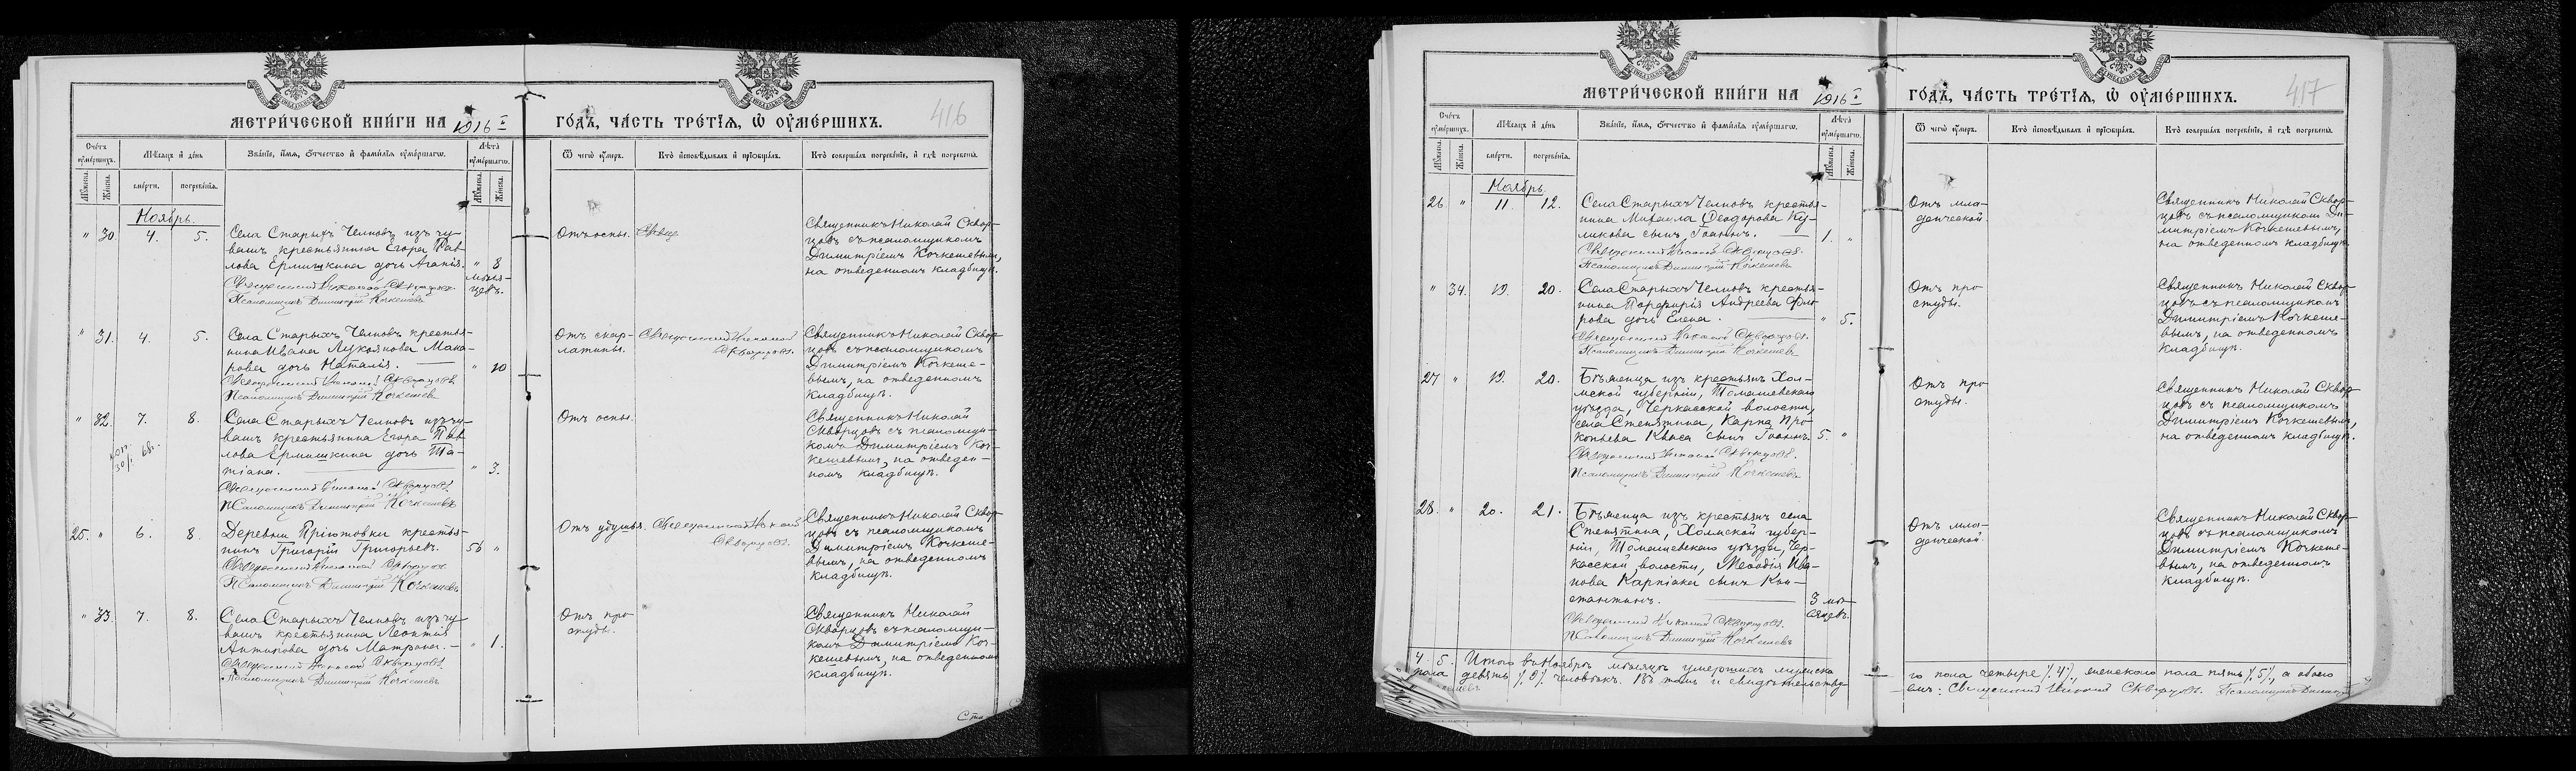 416
МЕТРИЧЕСКОЙ КНИГИ НА 1916 Г
ГОДЪ, ЧАСТЬ ТРЕТІЯ, Ѿ ОУМЕРШИХЪ.
Счетъ оумершихъ.
Мѣсяцъ и день
Званіе, имя, отчество и фамилія оумершагѡ.
Лѣта оумершагѡ.
Ѿ чегѡ оумеръ.
Кто исповѣдывалъ и пріобщалъ.
Кто совершалъ погребеніе, и гдѣ погребены.
Мужеска.
Женска.
смерти.
погребенія.
Мужеска.
Женска.
Ноябрь.
" 30. 4. 5.
Села Старыхъ Челновъ изъ чу-
вашъ крестьянина Егора Пав
лова Ермишкина дочь Агапія. " 8
мѣся-
цевъ.
Священникъ Николай Скворцовъ.
Псаломщикъ Димитрій Кочкешевъ
Отъ оспы.
Священникъ Николай Сквор-
цовъ съ псаломщикомъ
Димитріемъ Кочкешевымъ,
на отведенномъ кладбищѣ.
" 31. 4. 5.
Села Старыхъ Челновъ крестья-
нина Ивана Лукоянова Мака-
рова дочь Наталія. " 10
Священникъ Николай Скворцовъ
Псаломщикъ Димитрій Кочкешевъ
Отъ скар-
латины.
Священникъ Николай
Скворцовъ.
Священникъ Николай Сквор-
цовъ съ псаломщикомъ
Димитріемъ Кочкеше-
вымъ, на отведенномъ
кладбищѣ.
" 32. 7. 8.
Села Старыхъ Челновъ изъ чу-
вашъ крестьянина Егора Пав
лова Ермишкина дочь Та-
тіана. " 3.
Священникъ Николай Скворцовъ.
Псаломщикъ Димитрій Кочкешевъ
Отъ оспы.
Священникъ Николай
Скворцовъ съ псаломщи-
комъ Димитріемъ Коч-
кешевымъ, на отведен-
номъ кладбищѣ.
25. " 6. 8.
Деревни Пріютовки крестья-
нинъ Григорій Григорьевъ. 56 "
Священникъ Николай Скворцовъ
Псаломщикъ Димитрій Кочкешевъ
Отъ удушья.
Священникъ Николай
Скворцовъ.
Священникъ Николай Сквор-
цовъ съ псаломщикомъ
Димитріемъ Кочкеше-
вымъ, на отведенномъ
кладбищѣ.
" 33. 7. 8.
Села Старыхъ Челновъ изъ чу-
вашъ крестьянина Леонтія
Антипова дочь Матрона. " 1.
Священникъ Николай Скворцовъ.
Псаломщикъ Димитрій Кочкешевъ
Отъ про
студы.
Священникъ Николай
Скворцовъ съ псаломщи-
комъ Димитріемъ Коч-
кешевымъ, на отведенномъ
кладбищѣ.
417
МЕТРИЧЕСКОЙ КНИГИ НА 1916 Г
ГОДЪ, ЧАСТЬ ТРЕТІЯ, Ѿ ОУМЕРШИХЪ.
Счетъ оумершихъ.
Мѣсяцъ и день
Званіе, имя, отчество и фамилія оумершагѡ.
Лѣта оумершагѡ.
Ѿ чегѡ оумеръ.
Кто исповѣдывалъ и пріобщалъ.
Кто совершалъ погребеніе, и гдѣ погребены.
Мужеска.
Женска.
смерти.
погребенія.
Мужеска.
Женска.
Ноябрь.
26. " 11. 12.
Села Старыхъ Челновъ крестья-
нина Михаила Ѳеодорова Ку-
ликова сынъ Іоаннъ. 1. "
Священникъ Николай Скворцовъ.
Псаломщикъ Димитрій Кочкешевъ
Отъ мла-
денческой.
Священникъ Николай Сквор-
цовъ съ псаломщикомъ Ди-
митріемъ Кочкешевымъ,
на отведенномъ кладбищѣ.
" 34. 19. 20.
Села Старыхъ Челновъ крестья-
нина Порфирія Андреева Фло-
рова дочь Елена. " 5.
Священникъ Николай Скворцовъ.
Псаломщикъ Димитрій Кочкешевъ
Отъ про
студы.
Священникъ Николай Сквор-
цовъ съ псаломщикомъ
Димитріемъ Кочкеше-
вымъ, на отведенномъ
кладбищѣ.
27 " 19. 20.
Бѣженца изъ крестьянъ Хол-
мской губерніи, Томашевскаго
уѣзда, Черкасской волости,
села Стенятина, Карпа Про
копьева Кваса сынъ Іоаннъ. 5. "
Священникъ Николай Скворцовъ.
Псаломщикъ Димитрій Кочкешевъ
Отъ про
студы.
Священникъ Николай Сквор-
цовъ съ псаломщикомъ
Димитріемъ Кочкешевымъ,
на отведенномъ кладбищѣ.
28. " 20. 21.
Бѣженца изъ крестьянъ села
Стенятина, Холмской губер-
ніи, Томашевскаго уѣзда, Чер-
касской волости, Меѳодія Ива-
нова Карпіака сынъ Кон-
стантинъ. 3 мѣ-
сяцевъ.
Священникъ Николай Скворцовъ.
Псаломщикъ Димитрій Кочкешевъ
Отъ мла-
денческой.
Священникъ Николай Сквор-
цовъ съ псаломщикомъ
Димитріемъ Кочкеше-
вымъ, на отведенномъ
кладбищѣ.
4. 5. Итого въ Ноябрѣ мѣсяцѣ умершихъ мужска
го пола четыре /.4/., женскаго пола пять /.5/., а обоего
пола девять /.9/. человѣкъ. Въ томъ и свидѣтельству
емъ: Священникъ Николай Скворцовъ. Псаломщикъ Димитрій